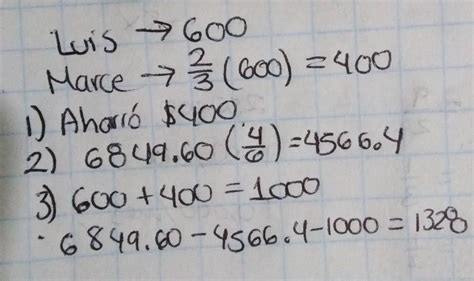 Luis → 600
Marce → 2/3 (600) = 400
1) Ahorró $400
2) 6849.60 (4/6) = 4566.4
3) 600 + 400 = 1000
· 6849.60 - 4566.4 - 1000 = 1328